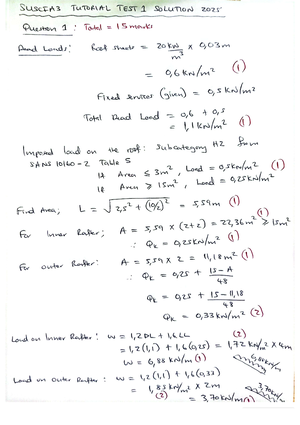 SUSCIA3 TUTORIAL TEST 1 SOLUTION 2025
Question 1 : Total = 15 marks
Dead Loads: Roof sheets = 20 kN/m³ × 0,03m
= 0,6 kN/m² (1)
Fixed services (given) = 0,5 kN/m²
Total Dead Load = 0,6 + 0,5
= 1,1 kN/m² (1)
Imposed load on the roof: Subcategory H2 from
SANS 10160-2 Table 5
If Area ≤ 3m², Load = 0,5kN/m² (1)
If Area ≥ 15m², Load = 0,25kN/m²
Find Area; L = √2,5² + (10/2)² = 5,59m (1)
For Inner Rafter; A = 5,59 × (2+2) = 22,36m² ≥ 15m² (1)
∴ Qk = 0,25kN/m² (1)
For outer Rafter: A = 5,59 × 2 = 11,18m² (1)
∴ Qk = 0,25 + 15-A/48
Qk = 0,25 + 15-11,18/48
Qk = 0,33kN/m² (2)
Load on Inner Rafter : w = 1,2DL + 1,6LL (2)
= 1,2(1,1) + 1,6(0,25) = 1,72 kN/m² × 4m
w = 6,88 kN/m (1) 6,88kN/m
Load on Outer Rafter : w = 1,2(1,1) + 1,6(0,33)
= 1,85 kN/m² × 2m 3,70kN/m
(2) = 3,70kN/m (1)